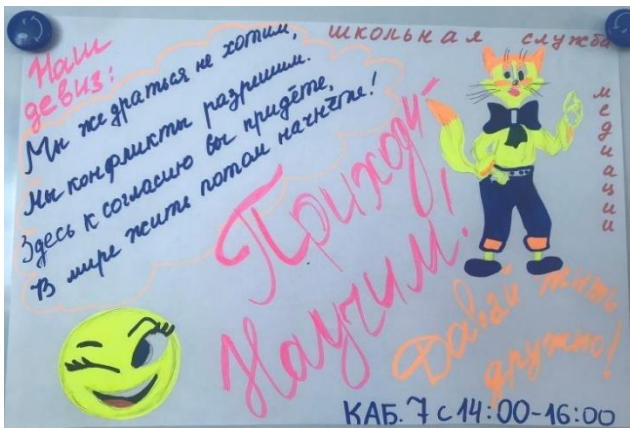 Наш
девиз:
Мы же драться не хотим,
Мы конфликты разрешим.
Здесь к согласию вы придёте,
В мире жить потом начнёте!
школьная служба
медиации
Приходи-
Научим!
Давай жить
дружно!
КАБ. 7 с 14:00-16:00